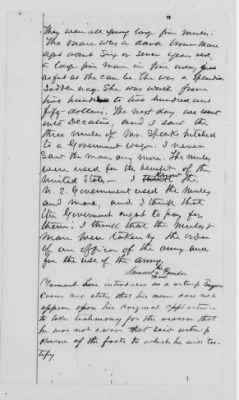 They were all young large fine mules.
The Mare was a dark brown Mare
aged about six or seven years old
a large fine Mare in fine order,
as fat as she can be. She was a splendid
Saddle nag. She was worth from
two hundred and
fifty dollars. The next day we went
into Decatur and I saw the
three mules of Mr. Speaks hitched
to a Government wagon. I never
saw the mare any more. The mules
were used for the benefit of the
United States. I the
U.S. Government used the mules
and mare, and I think that
the Government ought to pay for
them; I think that the mules &
mare were taken by the order
of an officer of the army and
for the use of the army.
Samuel his mark
Claimant here introduces as a witness
and states that his name does not
appear upon his original application
to take testimony for the reason that
he was not aware that said witness
knew of the facts to which he will tes-
tify